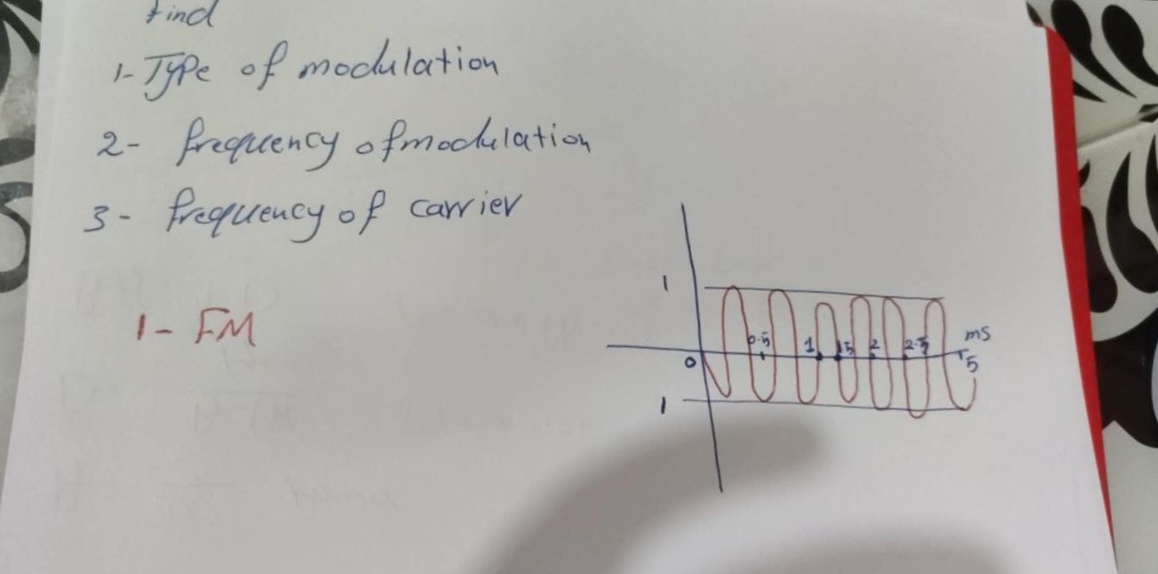 find
1- Type of modulation
2- frequency of modulation
3- frequency of carrier
1- FM
1
0.5 1 1.5 2 2.5 ms
0 5
1